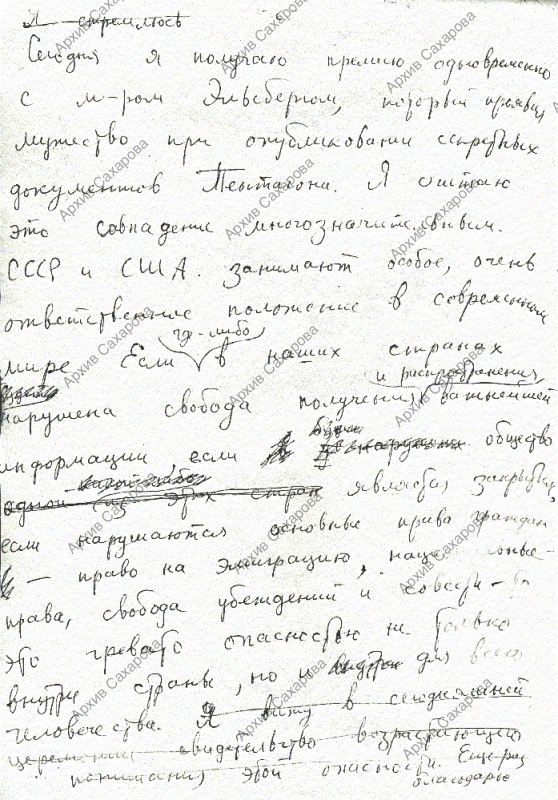 Я стремлюсь
Сегодня я получаю премию одновременно
с м-ром Эльсбергом, который проявил
мужество при опубликовании секретных
документов Пентагона. Я считаю
это совпадение многозначительным.
СССР и США. занимают особое, очень
ответственное положение в современном
где-либо
мире Если в наших странах
и распространения
нарушена свобода получения важнейшей
информации, если общество
одной из этих стран является закрытым,
если нарушаются основные права граждан
— право на эмиграцию,
права, свобода убеждений и совести - то
это чревато опасностью не только
внутри страны, но и для всего
человечества. Я вижу в сегодняшней
церемонии свидетельство возрастающего
понимания этой опасности. Еще раз
благодарю
Архив Сахарова